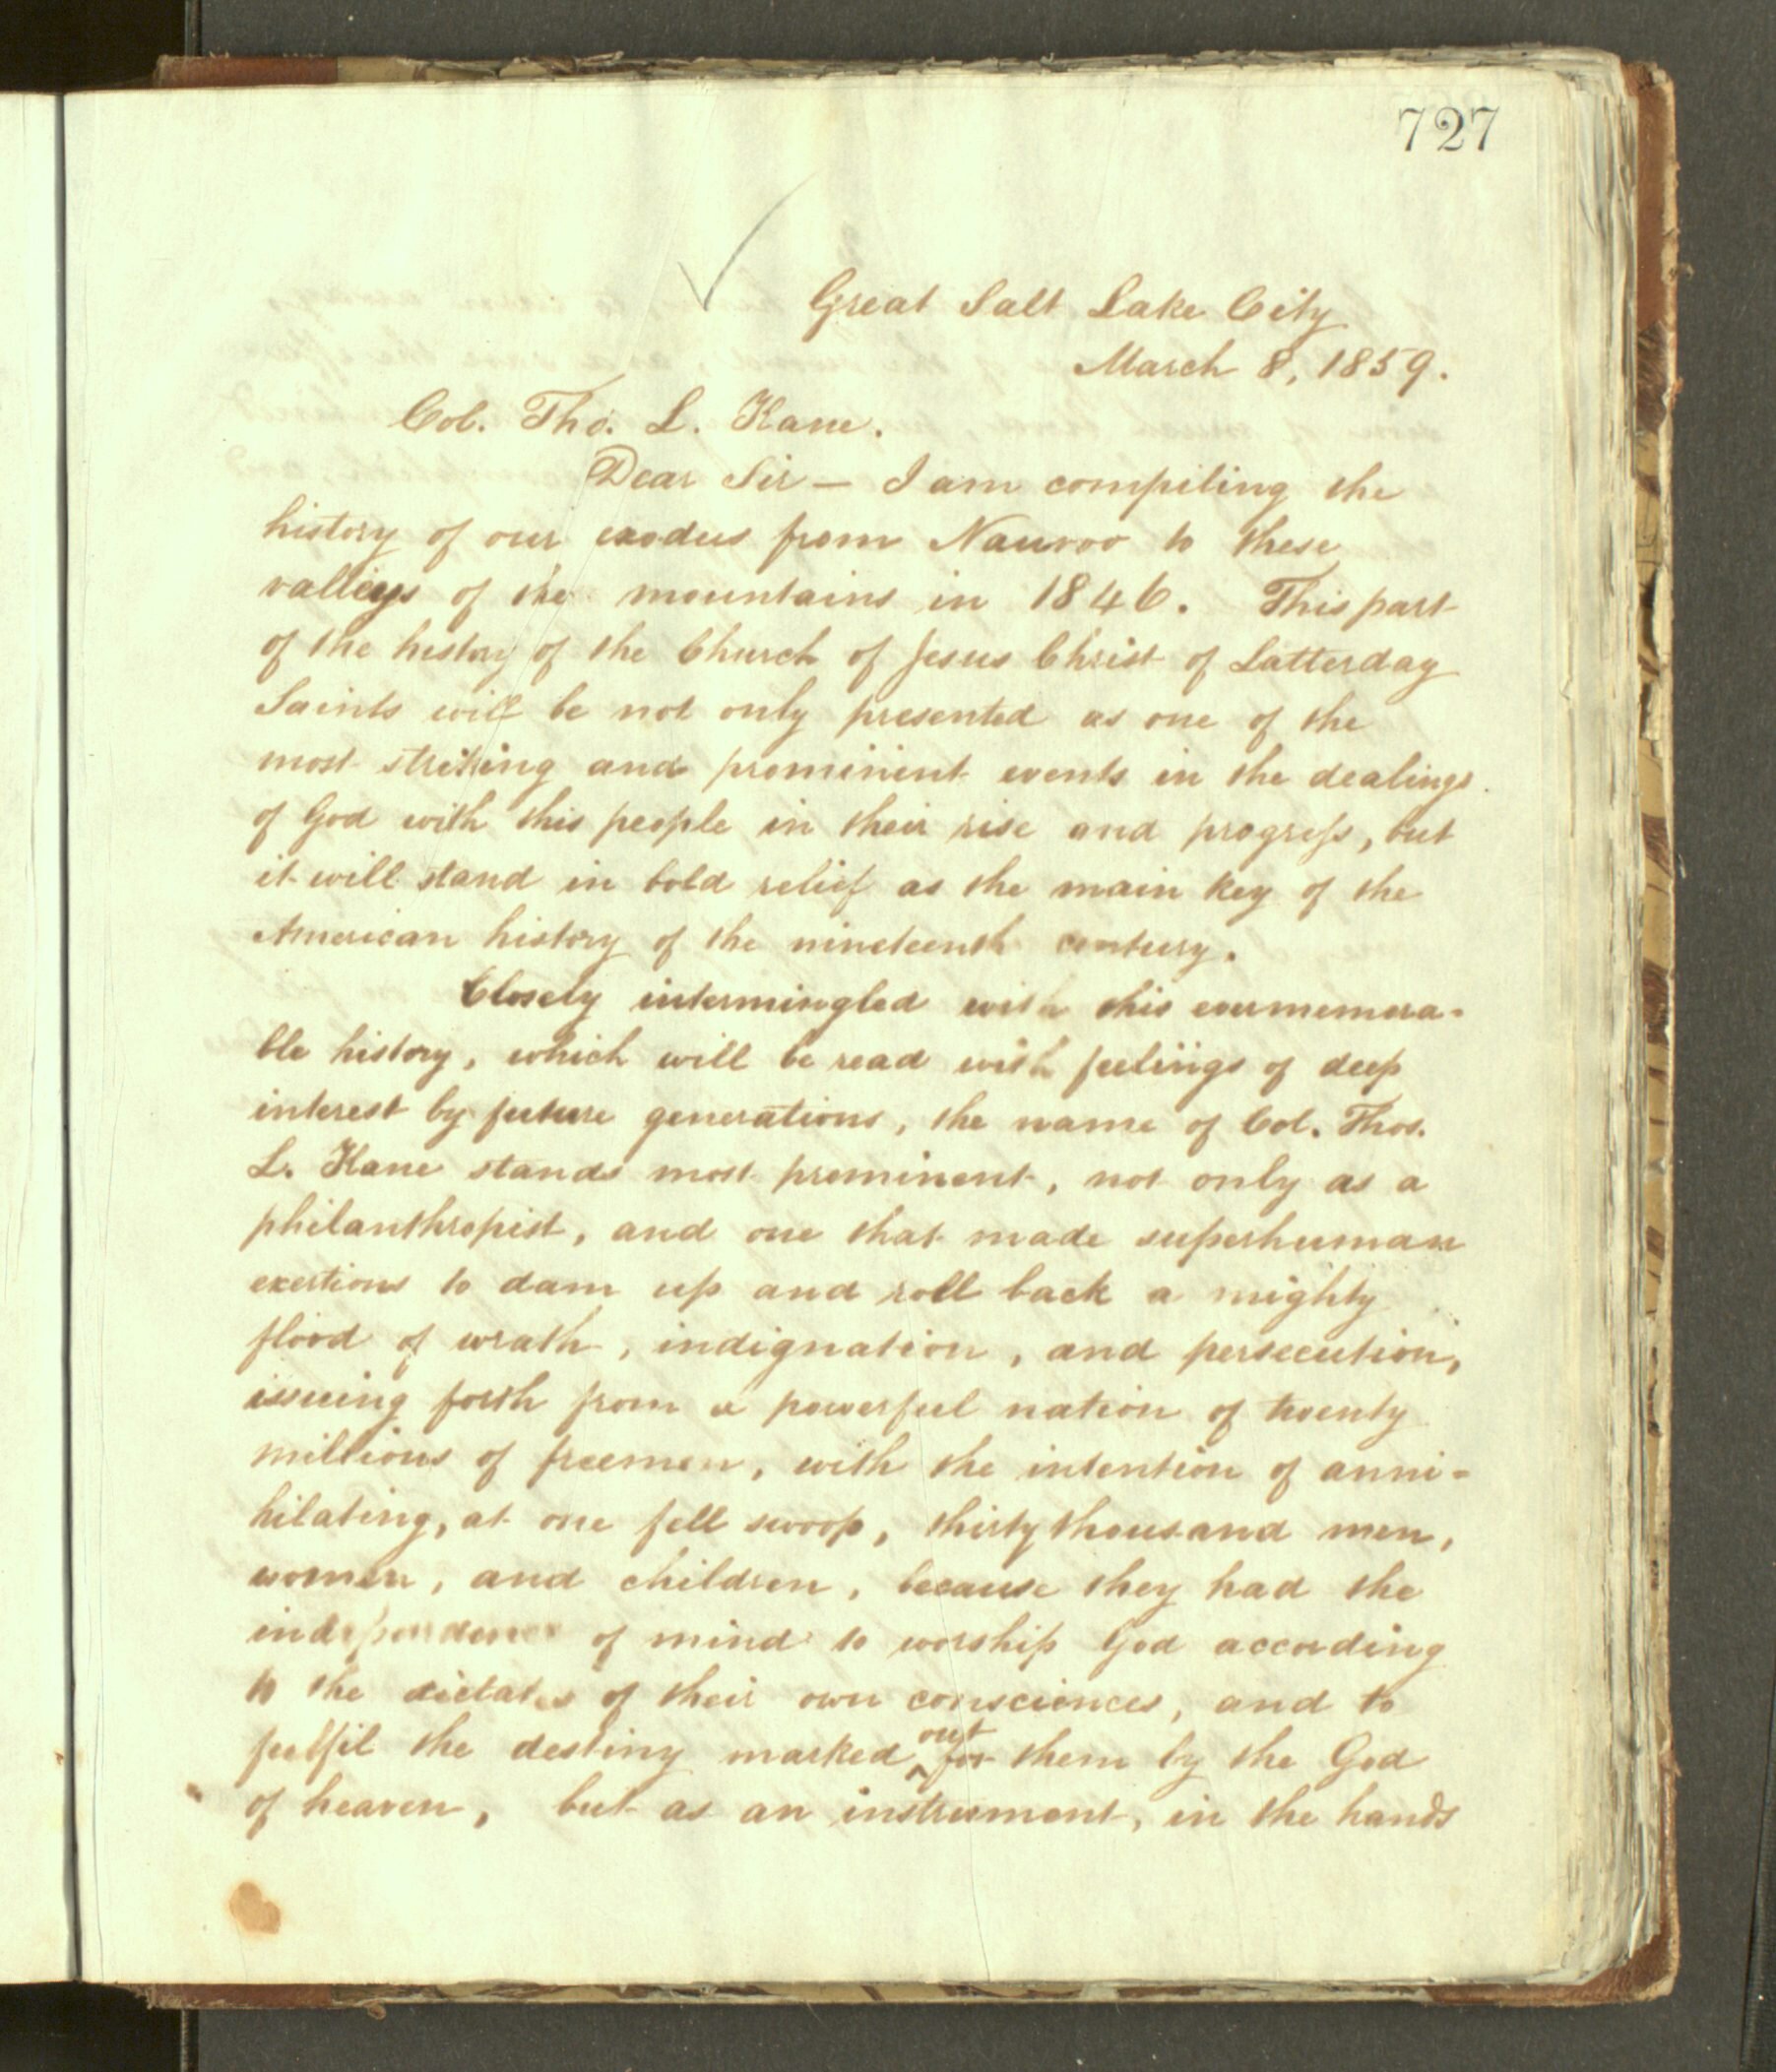 727
Great Salt Lake City
March 8, 1859.
Col. Tho. L. Kane.
Dear Sir — I am compiling the
history of our exodus from Nauvoo to these
valleys of the mountains in 1846. This part
of the history of the Church of Jesus Christ of Latterday
Saints will be not only presented as one of the
most striking and prominent events in the dealings
of God with this people in their rise and progress, but
it will stand in bold relief as the main key of the
American history of the nineteenth century.
Closely intermingled with this evermemora-
ble history, which will be read with feelings of deep
interest by future generations, the name of Col. Thos.
L. Kane stands most prominent, not only as a
philanthropist, and one that made superhuman
exertions to dam up and roll back a mighty
flood of wrath, indignation, and persecution,
issuing forth from a powerful nation of twenty
millions of freemen, with the intention of anni-
hilating, at one fell swoop, thirty thousand men,
women, and children, because they had the
independence of mind to worship God according
to the dictates of their own consciences, and to
fulfil the destiny marked out for them by the God
of heaven, but as an instrument, in the hands